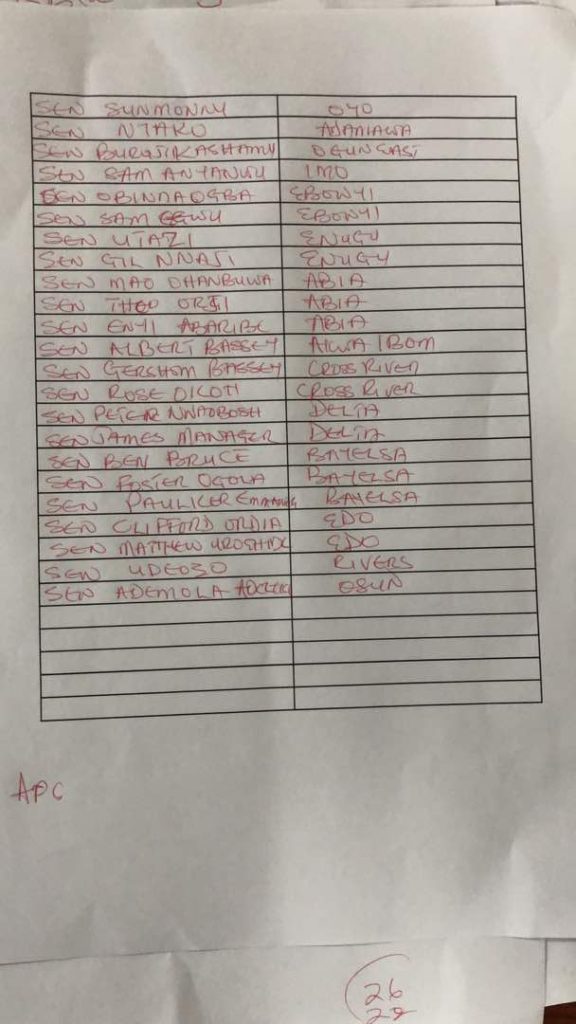 SEN SUNMONNU OYO
SEN NYAKO ADAMAWA
SEN BURUJI KASHAMU OGUN EAST
SEN SAM ANYANWU IMO
SEN OBINNA OGBA EBONYI
SEN SAM EGWU EBONYI
SEN UTAZI ENUGU
SEN GIL NNAJI ENUGU
SEN MAO OHANBUWA ABIA
SEN THEO ORJI ABIA
SEN ENYI ABARIBE ABIA
SEN ALBERT BASSEY AKWA IBOM
SEN GERSHOM BASSEY CROSS RIVER
SEN ROSE OKOTI CROSS RIVER
SEN PETER NWAOBOSH DELTA
SEN JAMES MANAGER DELTA
SEN BEN BRUCE BAYELSA
SEN FOSTER OGOLA BAYELSA
SEN PAULKER BAYELSA
SEN CLIFFORD ORDIA EDO
SEN MATTHEW EDO
SEN UDEOZO RIVERS
SEN ADEMOLA OSUN
APC
26